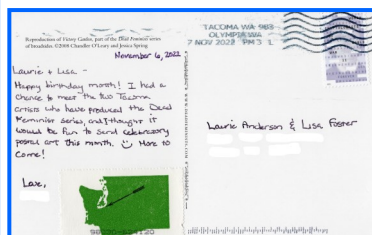 Reproduction of Victory Garden, part of the Dead Feminists series
of broadsides. ©2008 Chandler O'Leary and Jessica Spring
November 6, 2022
Laurie + Lisa –
Happy birthday month! I had a
chance to meet the two Tacoma
artists who have produced the Dead
Feminist series, and I thought it
would be fun to send celebratory
postal art this month. :) More to
Come!
Love,
TACOMA WA 983
OLYMPIA WA
7 NOV 2022 PM 3 L
Laurie Anderson & Lisa Foster